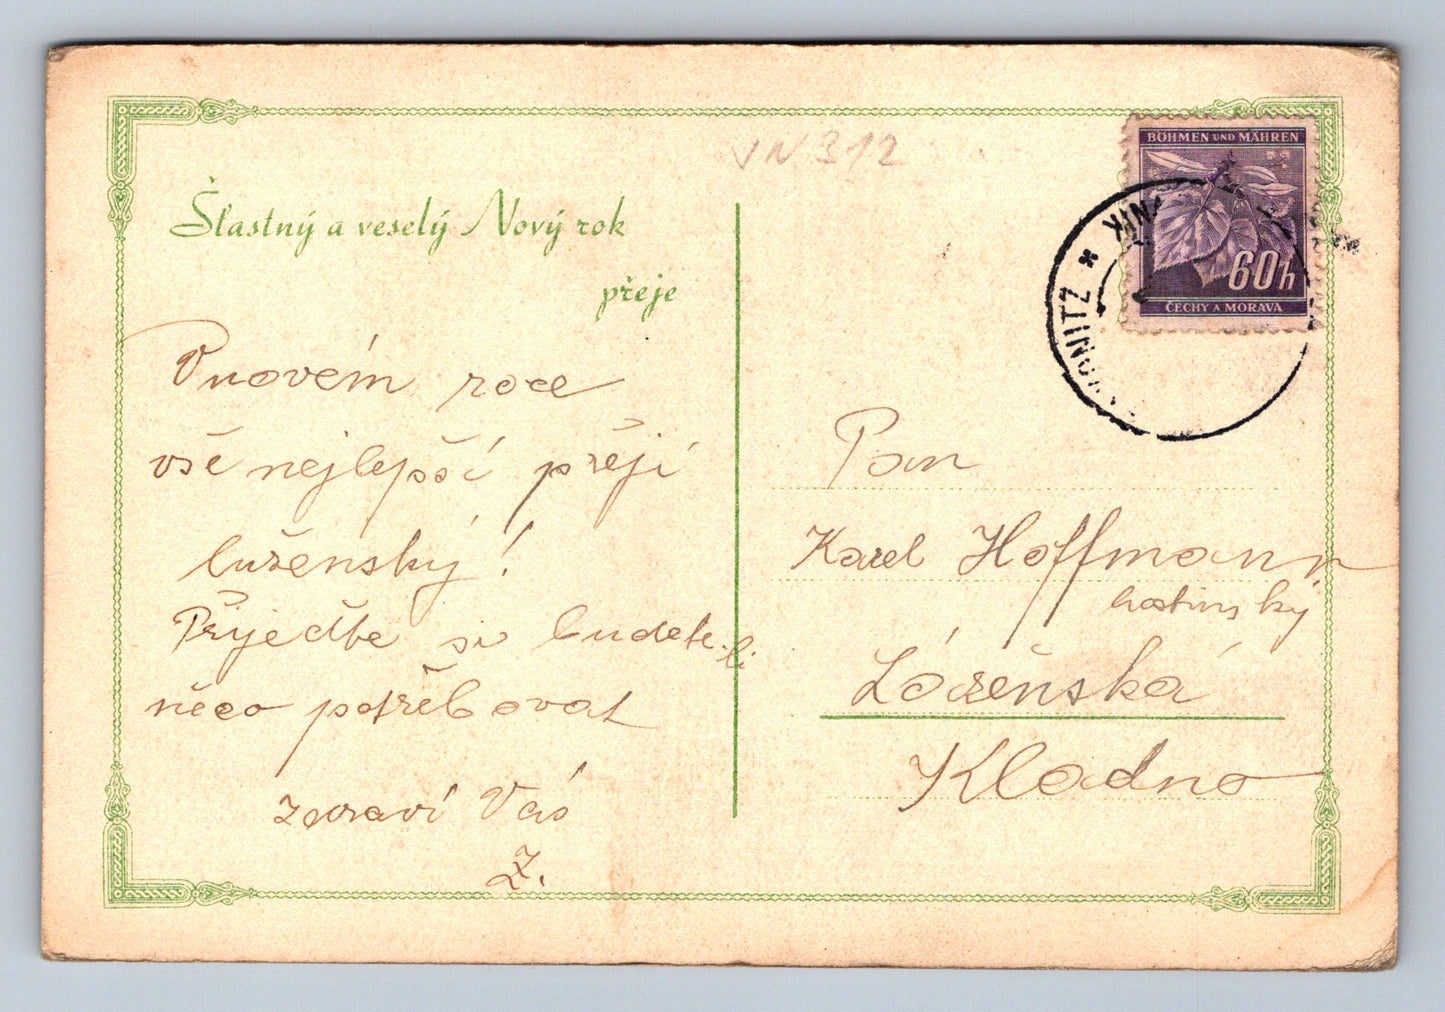 VN 312
BÖHMEN UND MÄHREN
60h
ČECHY A MORAVA
Šťastný a veselý Nový rok
přeje
V novém roce
vše nejlepší přejí
luženský!
Přijeďte si budete-li
něco potřebovat
zdraví Vás
Z.
Pan
Karel Hoffmann
hostinský
Kladno